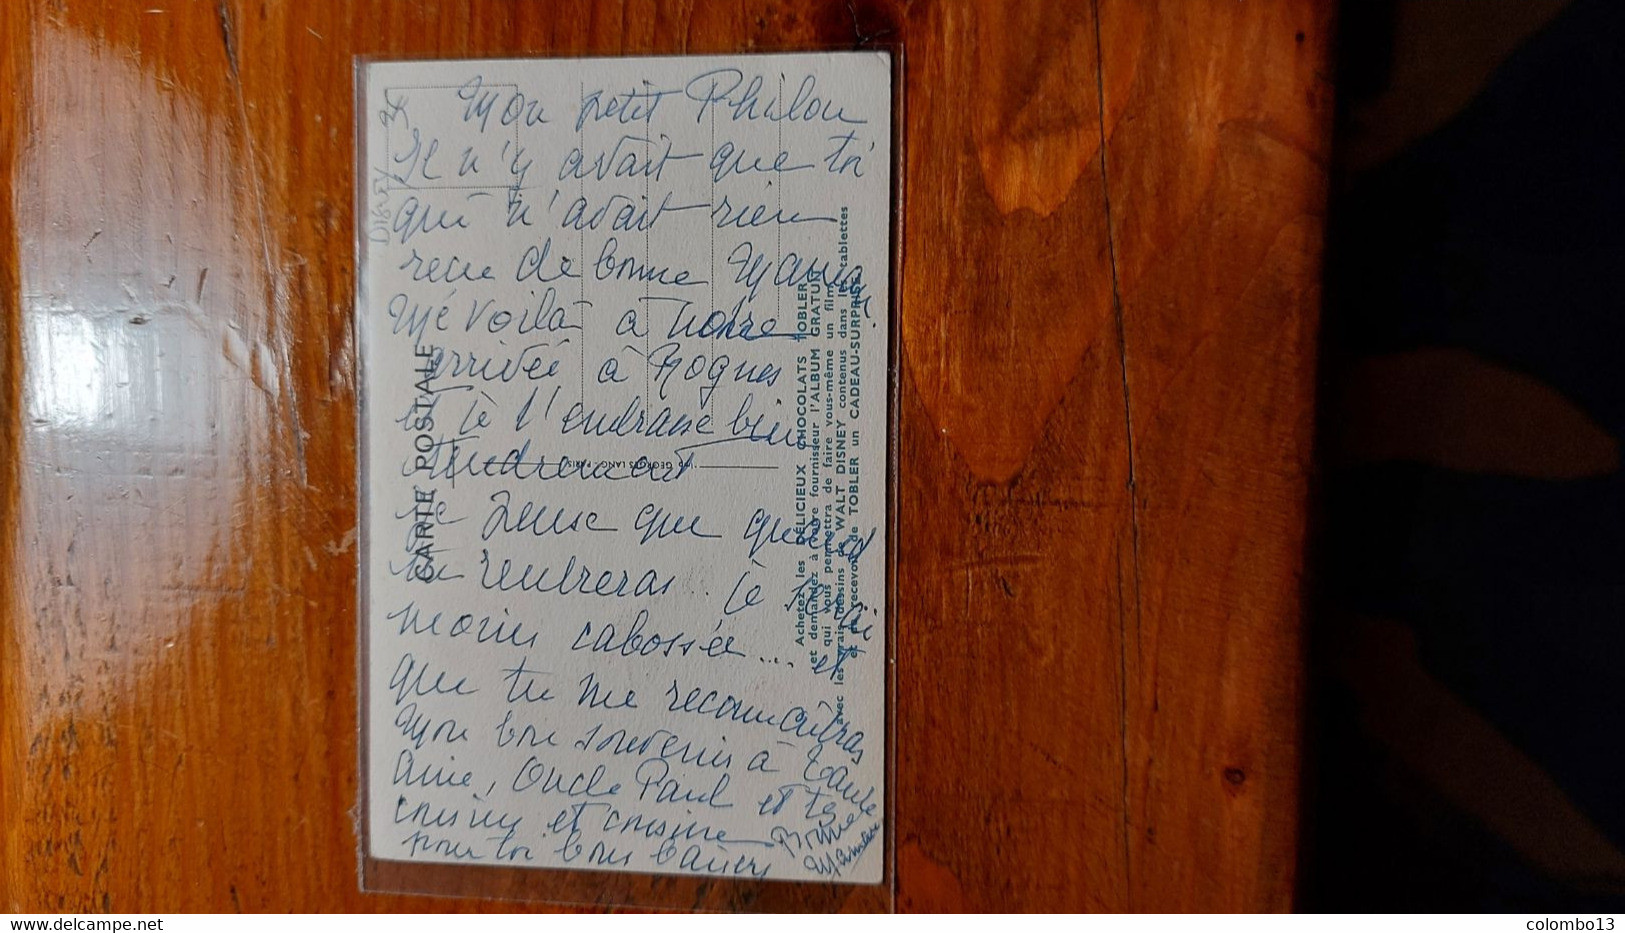 Mon petit Philou
Il n'y avait que toi
qui n'avait rien
recu de bonne Maman
Me voilà à notre
arrivée à Rognes
et je t'embrasse bien
tendrement
Je pense que quand
tu rentreras. je serai
moins cabossée... et
que tu me reconnaîtras
Mon bon souvenir à tante
Aime, Oncle Paul et tes
cousin et cousine
pour toi bons baisers
Bonne
Maman
DISNEY
CARTE POSTALE
IMP. GEORGES LANG, PARIS
Achetez les DÉLICIEUX CHOCOLATS TOBLER
et demandez à votre fournisseur l'ALBUM GRATUIT
qui vous permettra de faire vous-même un film
avec les vrais dessins de WALT DISNEY contenus dans les tablettes
et de recevoir de TOBLER un CADEAU-SURPRISE
colombo13